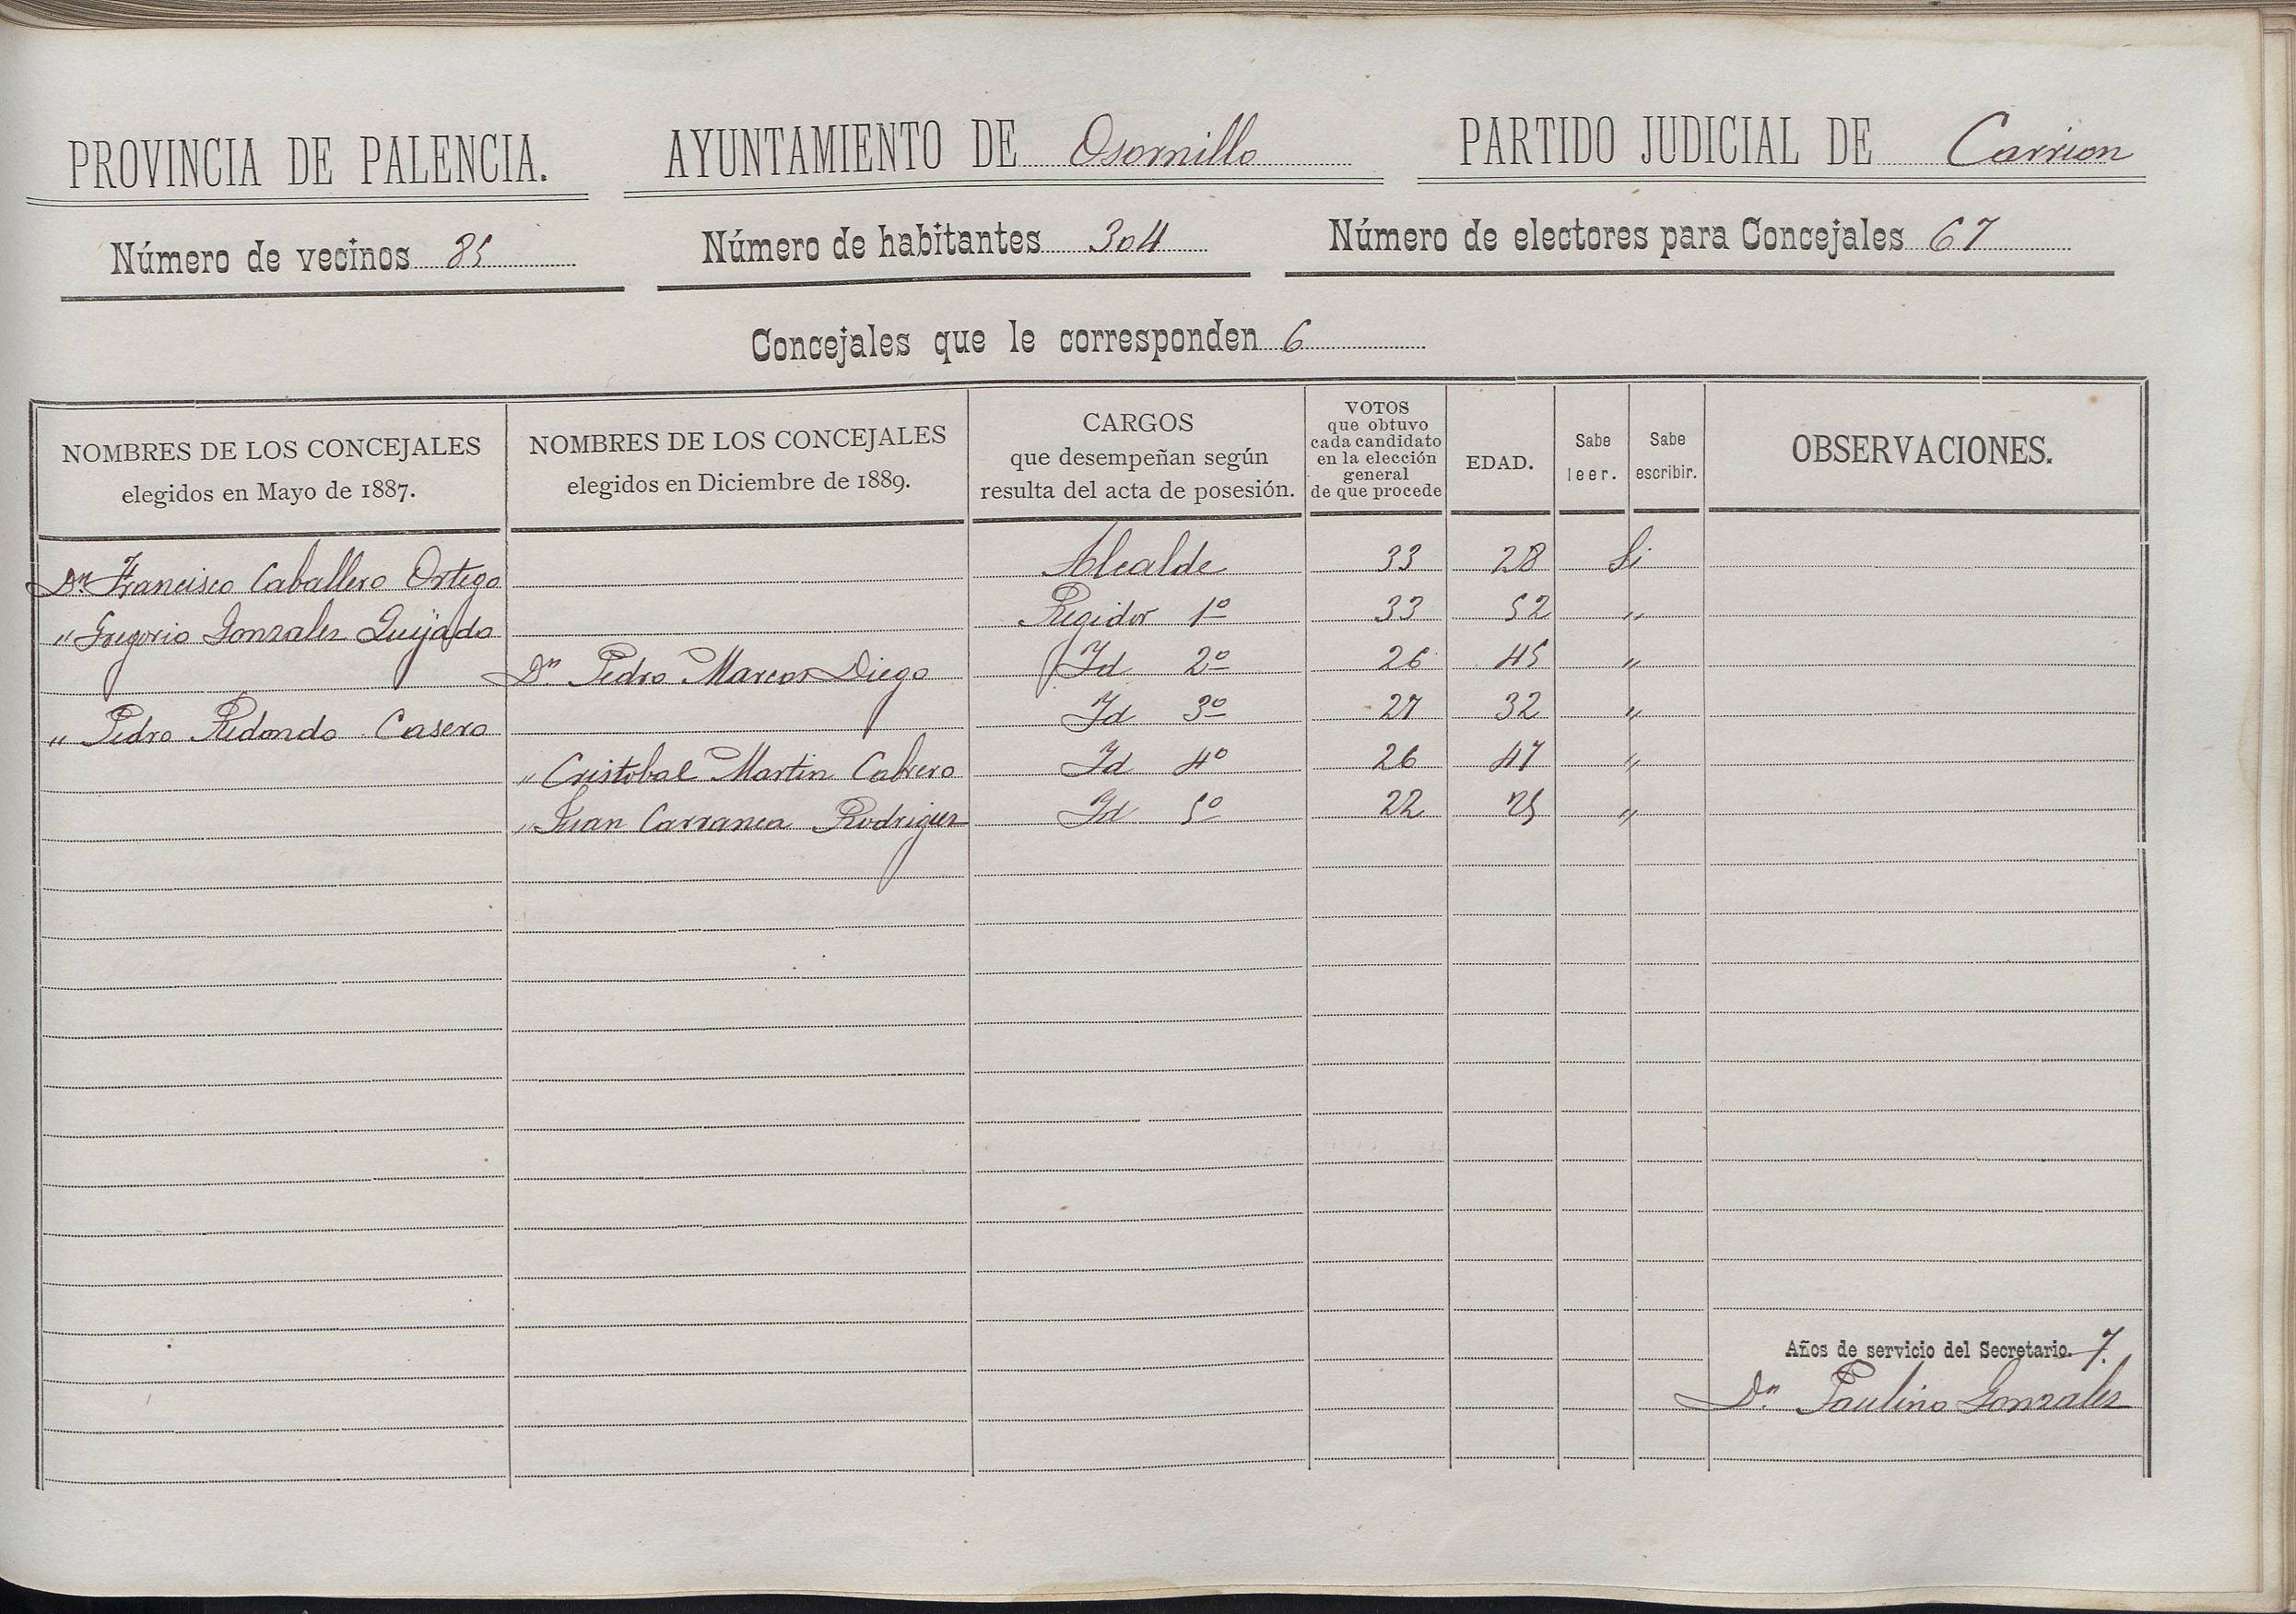 PROVINCIA DE PALENCIA. AYUNTAMIENTO DE Osornillo PARTIDO JUDICIAL DE Carrion
Número de vecinos 85 Número de habitantes 304 Número de electores para Concejales 67
Concejales que le corresponden 6
NOMBRES DE LOS CONCEJALES
elegidos en Mayo de 1887.
NOMBRES DE LOS CONCEJALES
elegidos en Diciembre de 1889.
CARGOS
que desempeñan según
resulta del acta de posesión.
VOTOS
que obtuvo
cada candidato
en la elección
general
de que procede
EDAD.
Sabe
leer.
Sabe
escribir.
OBSERVACIONES.
Dn. Francisco Caballero Ortega Alcalde 33 28 Si
" Gregorio Gonzales Quijada Regidor 1º 33 52 "
Dn. Pedro Marcos Diego Id 2º 26 45 "
" Pedro Redondo Casero Id 3º 27 32 "
" Cristobal Martin Cabrero Id 4º 26 47 "
" Juan Carranca Rodriguez Id 5º 22 25 "
Años de servicio del Secretario. 7.
Dn. Paulino Gonzales